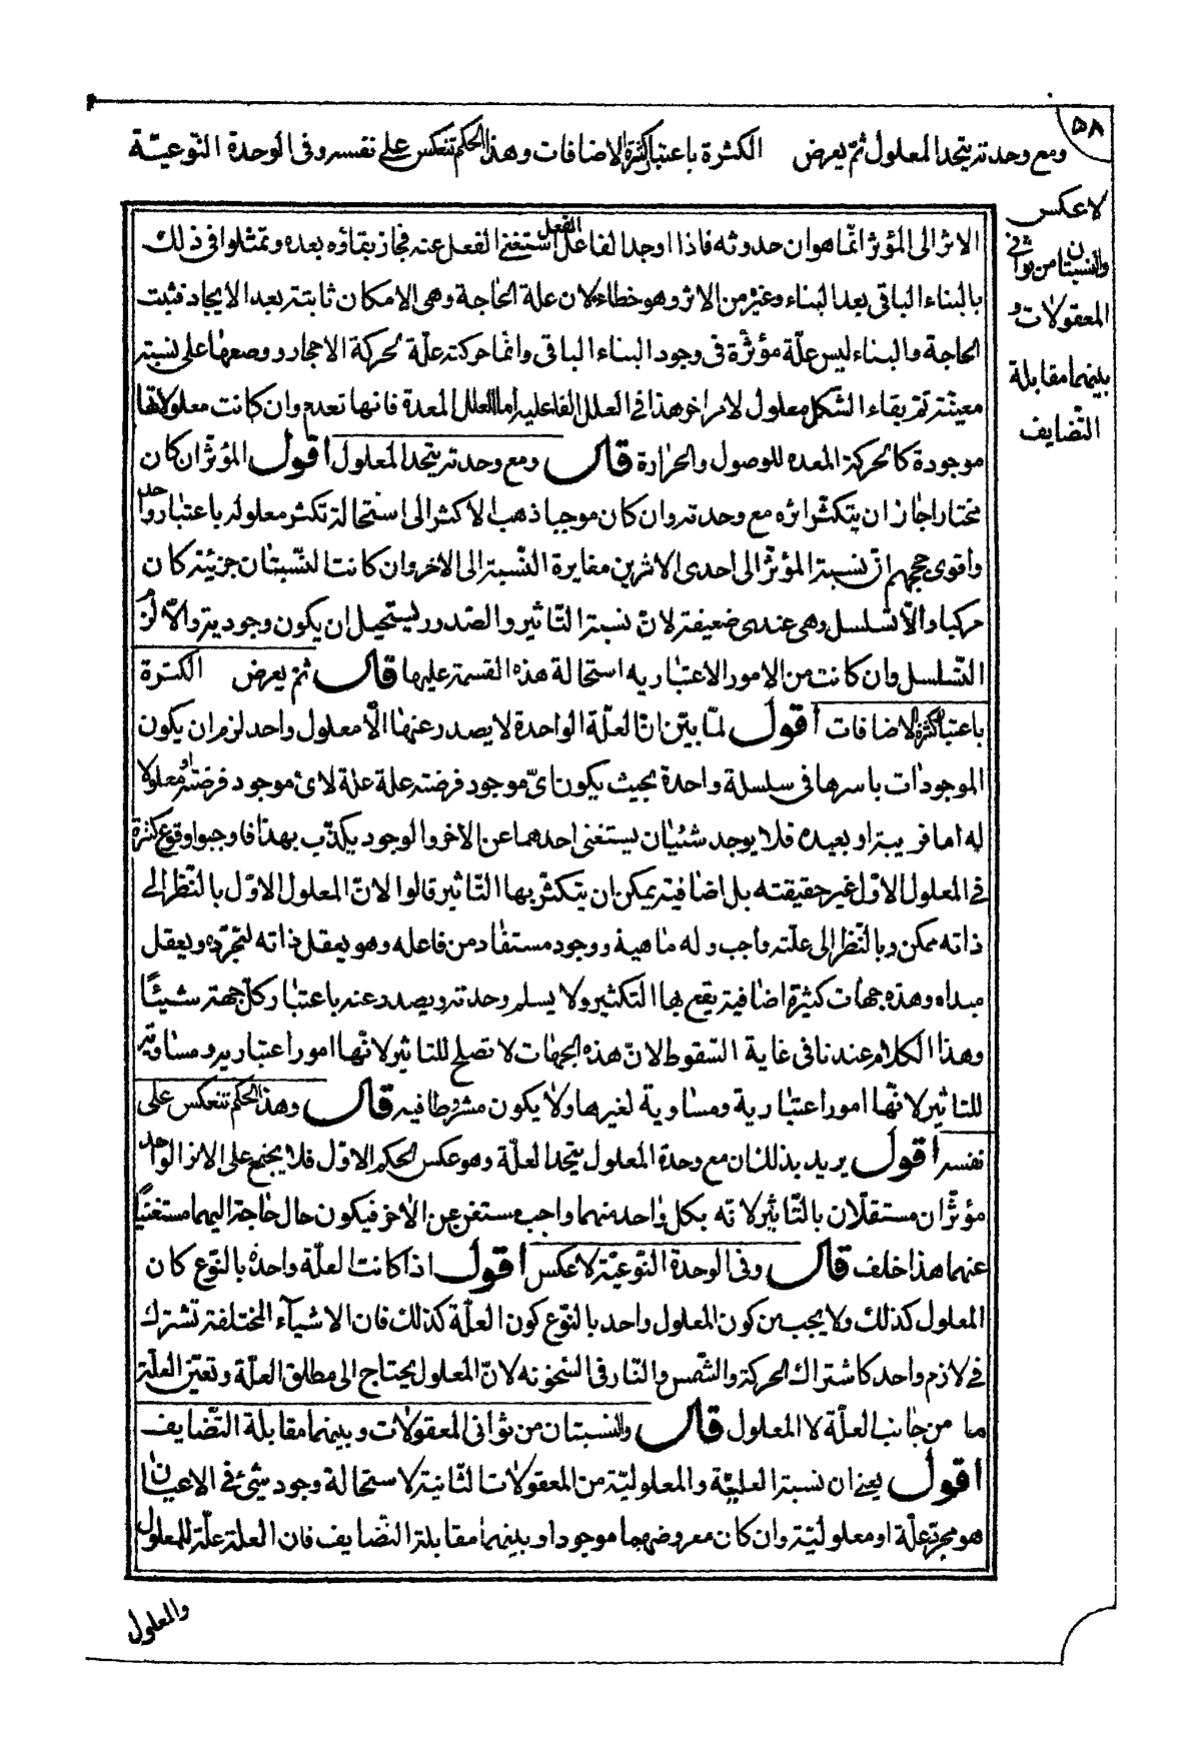 ٥٨
ومع وحدته يتحد المعلول ثمّ يعرض الكثرة باعتبار كثرة الاضافات وهذا الحكم تنعكس على نفسه وفى الوحدة النّوعيّة
لا عكس
والنسبتان من ثوانى
المعقولات و
بينهما مقابلة
التّضايف
الاثر الى المؤثر انّما هو ان حدوثه فاذا اوجد الفاعل الفعل استغنى الفعل عنه فجاز بقاؤه بعده وتمثلوا فى ذلك
بالبناء الباقى بعد البناء وغيره من الاثر وهو خطاء لان علة الحاجة وهى الامكان ثابتة بعد الايجاد فثبت
الحاجة والبناء ليس علّة مؤثّرة فى وجود البناء الباقى وانّما حركته علّة لحركة الاحجار ووضعها على نسبة
معيّنة ثم بقاء الشكل معلول لامر اخر هذا فى العلل الفاعلية اما العلل المعدة فانها تعدم وان كانت معلولاتها
موجودة كالحركة المعده للوصول والحرارة قال ومع وحدته يتحد المعلول اقول المؤثر ان كان
مختارا جاز ان يتكثّر اثره مع وحدته وان كان موجبا ذهب الاكثر الى استحالة تكثر معلوله باعتبار واحد
واقوى حججهم انّ نسبة المؤثّر الى احدى الاثرين مغايرة النّسبة الى الاخر وان كانت النّسبتان جزئيه كان
مركبا والّا تسلسل وهى عندى ضعيفة لانّ نسبة التّاثير والصّدور يستحيل ان يكون وجودية والّا لزم
التّسلسل وان كانت من الامور الاعتباريه استحالة هذه القسمة عليها قال ثم يعرض الكثرة
باعتبار كثرة الاضافات اقول لمّا بيّن انّ العلّة الواحدة لا يصدر عنها الّا معلول واحد لزم ان يكون
الموجودات باسرها فى سلسلة واحدة بحيث يكون اىّ موجود فرضته علة علة لاىّ موجود فرضته او معلولا
له اما قريبة او بعيده فلا يوجد شئيان يستغنى احدهما عن الاخر والوجود يكذّب بهذا فاوجبوا وقوع كثرة
فى المعلول الاوّل غير حقيقته بل اضافية يمكن ان يتكثّر بها التّاثير قالوا لانّ المعلول الاوّل بالنّظر الى
ذاته ممكن وبالنّظر الى علّته واجب وله ماهية ووجود مستفاد من فاعله وهو يعقل ذاته لتجرّده ويعقل
مبداه وهذه جهات كثيرة اضافية يقع بها التكثير ولا يسلم وحدته ويصدر عنه باعتبار كلّ جهة شيئًا
وهذا الكلام عندنا فى غاية السّقوط لانّ هذه الجهات لا تصلح للتاثير لانّها امور اعتباريه ومساوية
للتاثير لانّها امور اعتبارية ومساوية لغيرها ولا يكون مشروطا فيه قال وهذا الحكم تنعكس على
نفسه اقول يريد بذلك ان مع وحدة المعلول يتحد العلّة وهو عكس الحكم الاوّل فلا يجتمع على الاثر الواحد
مؤثّران مستقلّان بالتّاثير لانّه بكل واحد منهما واجب مستغن عن الاخر فيكون حال حاجة اليهما مستغنيًا
عنهما هذا خلف قال وفى الوحدة النّوعيّة لا عكس اقول اذا كانت العلّة واحدة بالنّوع كان
المعلول كذلك ولا يجب من كون المعلول واحد بالنّوع كون العلّة كذلك فان الاشيآء المختلفة تشترك
فى لازم واحد كاشتراك الحركة والشّمس والنّار فى السّخونه لانّ المعلول يحتاج الى مطلق العلّة وتعيّن العلّة
ما من جانب العلّة لا المعلول قال والنسبتان من ثوانى المعقولات وبينهما مقابلة التّضايف
اقول يعنى ان نسبة العليّة والمعلوليّة من المعقولات الثّانية لاستحالة وجود شئ فى الاعيان
هو مجرّد علّة او معلوليّة وان كان معروضهما موجودا وبينهما مقابلة التّضايف فان العلة علّة للمعلول
والمعلول